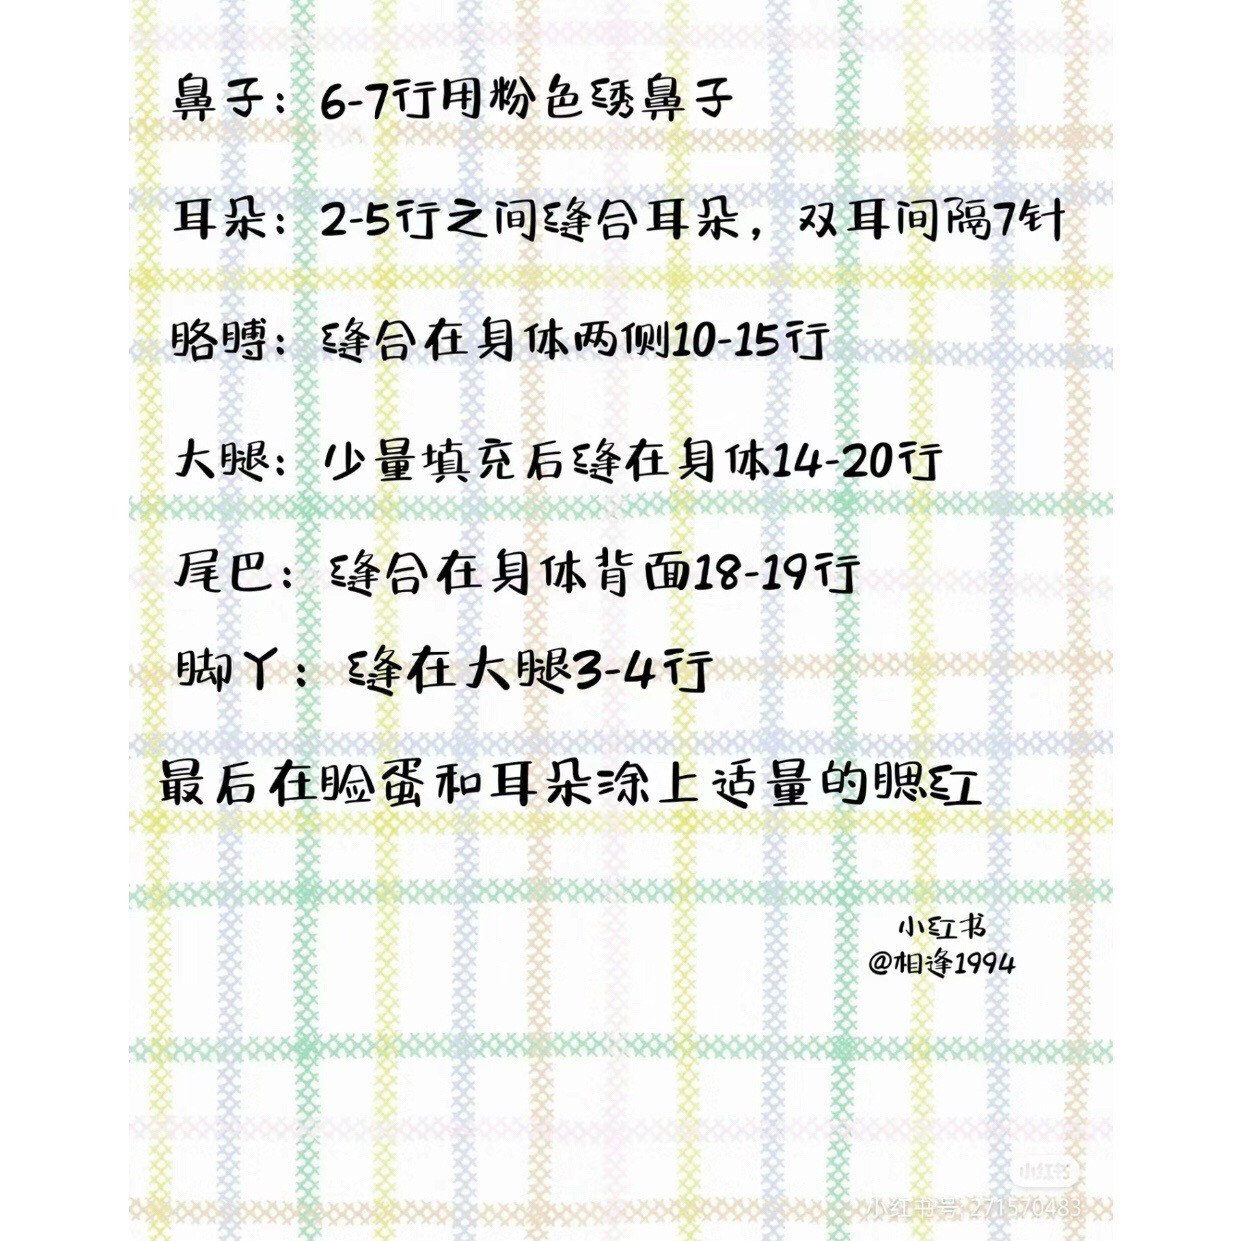 鼻子：6-7行用粉色绣鼻子
耳朵：2-5行之间缝合耳朵，双耳间隔7针
胳膊：缝合在身体两侧10-15行
大腿：少量填充后缝在身体14-20行
尾巴：缝合在身体背面18-19行
脚丫：缝在大腿3-4行
最后在脸蛋和耳朵涂上适量的腮红
小红书
@相逢1994
小红书
小红书号: 271570483